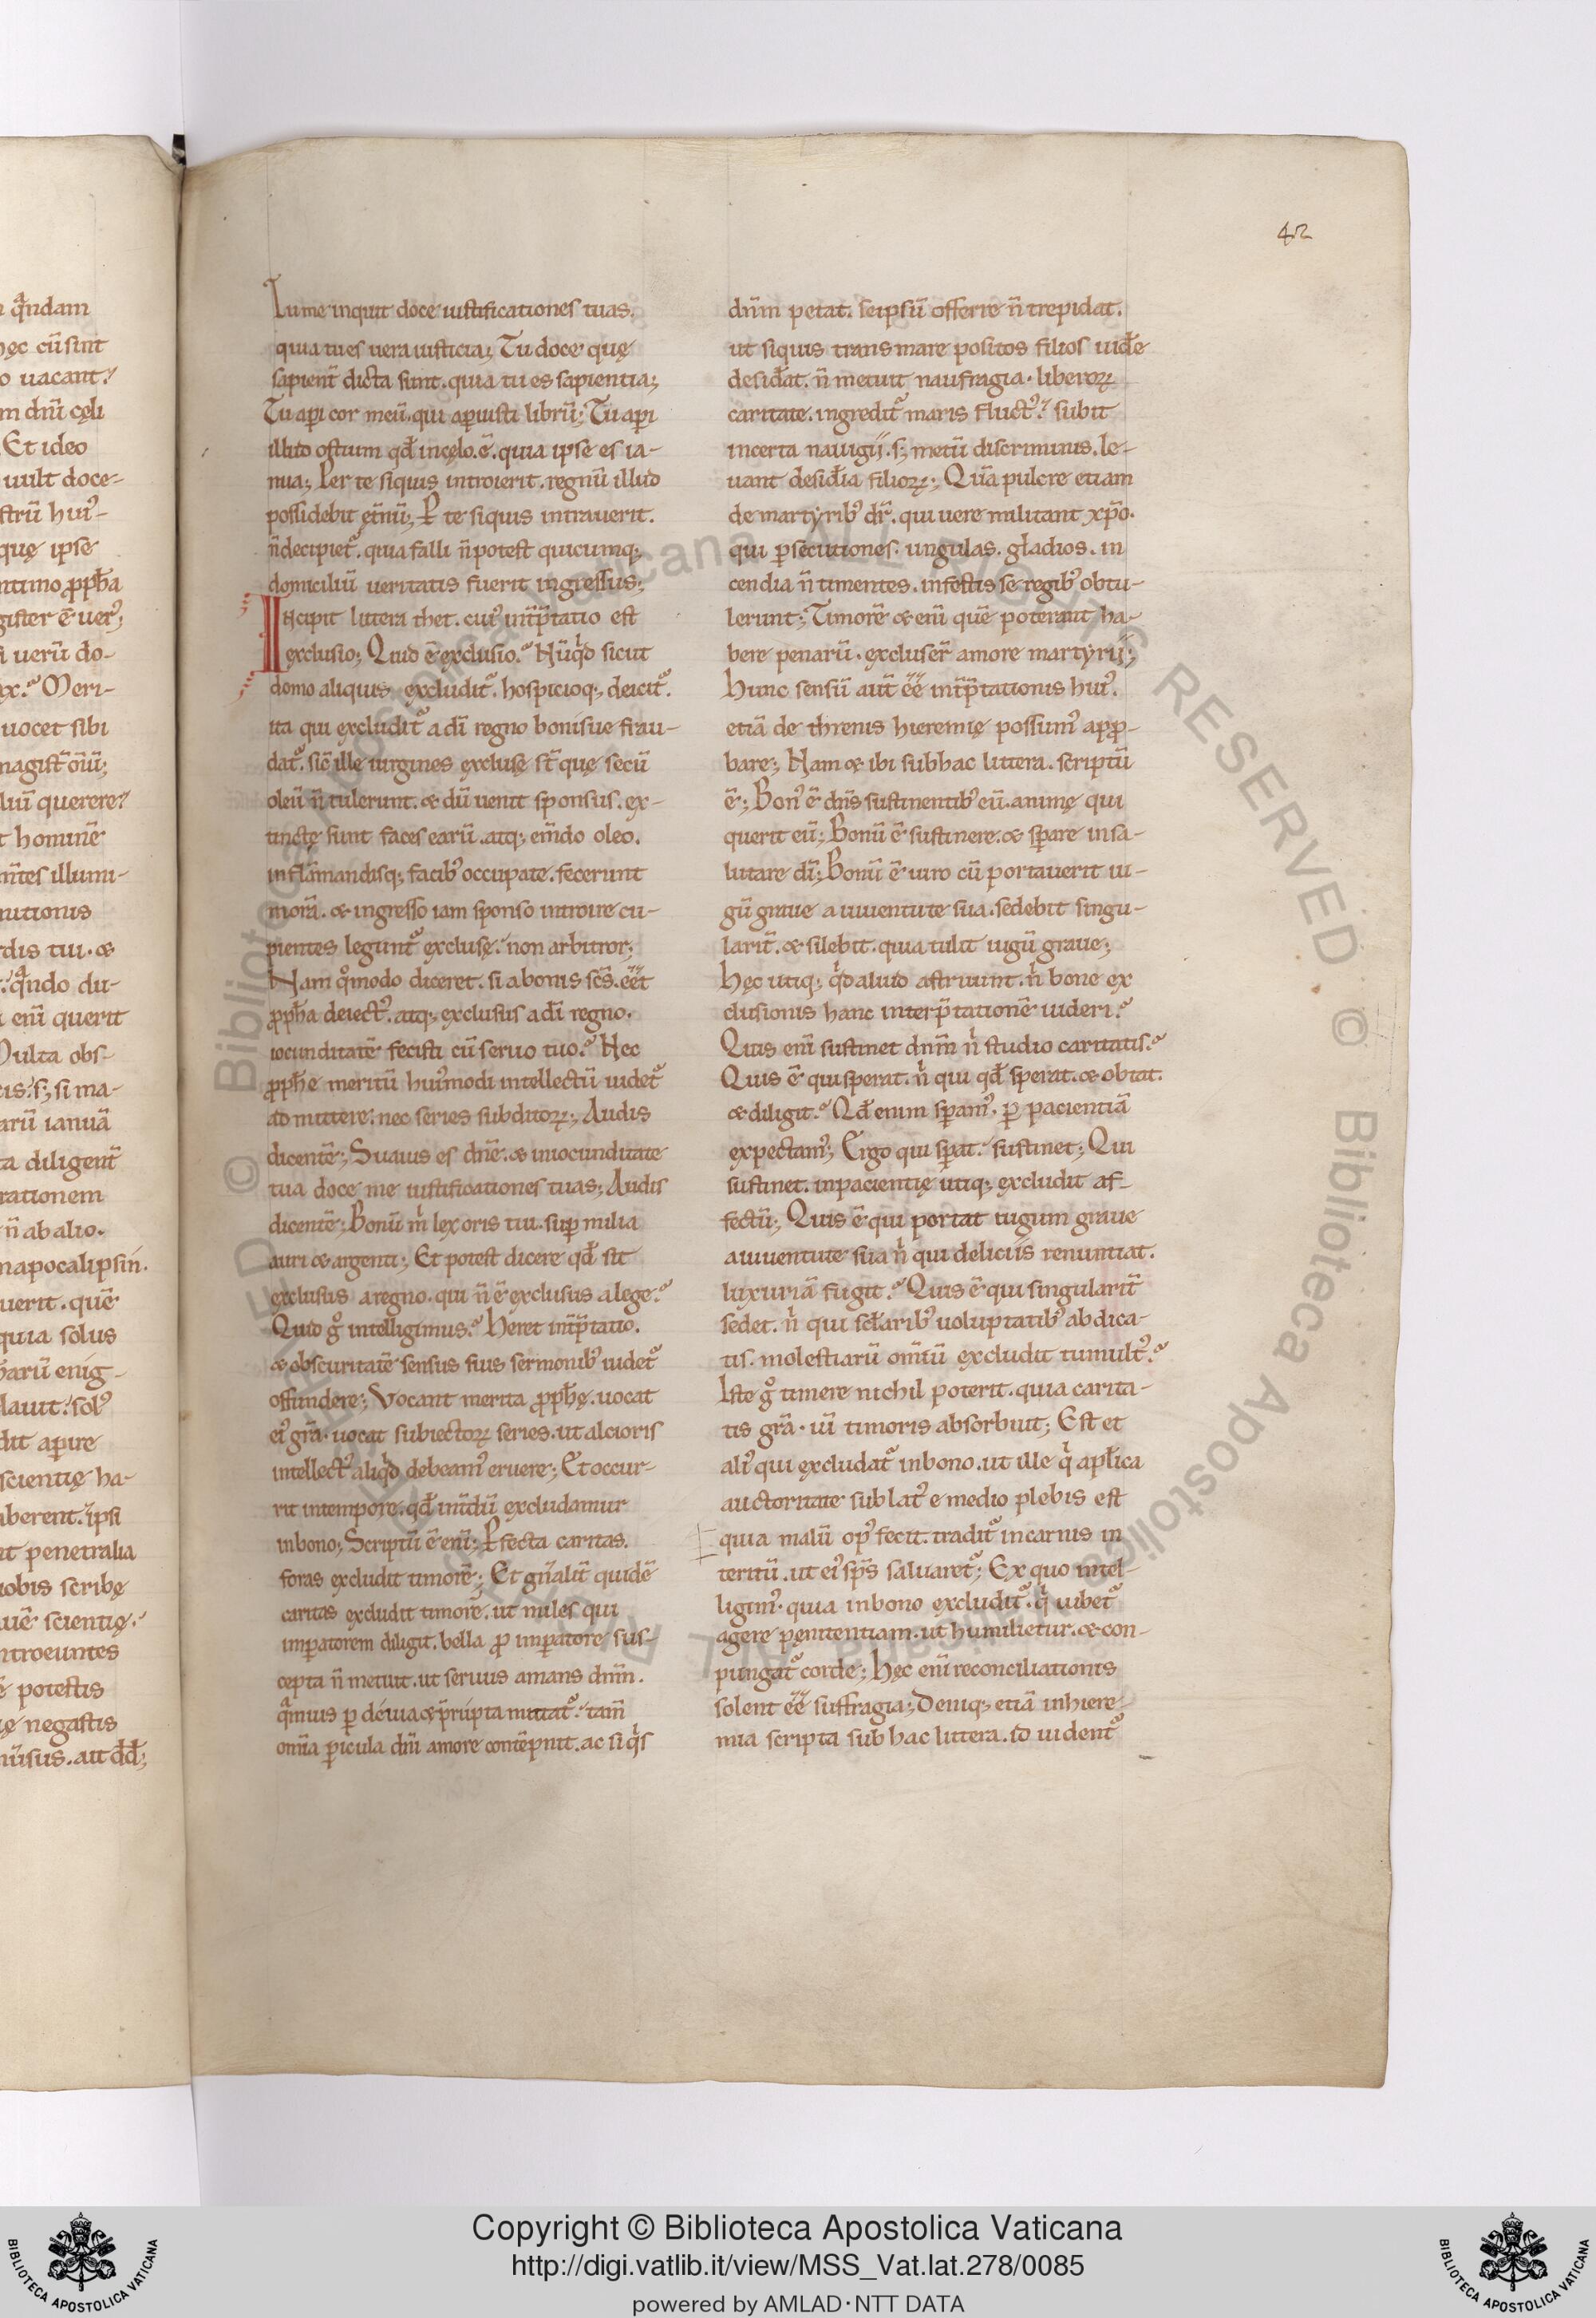 42
n q̃ndam
hęc cū sint
o uacant?
m dñi cęli
Et ideo
uult doce-
strū hui᷒-
quę ipse
ntimo ꝓpħa
gister ē uer᷒;
i uerū do-
ex.? Meri-
uocet sibi
magist̃ oīū;
luī querere?
t hominē
ntes illumi-
nutionis
rdis tui. &
? q̃ndo du-
i enī querit
Multa obs-
tis? s; si ma-
arū ianuā
ta diligent̃
rationem
ñ ab alio.
napocalipsin.
uerit. quē
quia solus
barū enig-
lauit? sol᷒
dit aperire
scientię ha-
aberent. ipsi
et penetralia
uobis scribę
uē scientię?
ntroeuntes
ē potestis
ę negastis
nusus. aut dd̃;
Tu me inquit doce iustificationes tuas.
quia tu es uera iusticia; Tu doce quę
sapient̃ dicta sunt. quia tu es sapientia;
Tu aperi cor meū. qui aperuisti librū; Tu aperi
illud ostium qđ in cęlo. ē. quia ipse es ia-
nua; Per te siquis introierit. regnū illud
possidebit ęt̃nū; P te siquis intrauerit.
ñ decipiet᷑. quia falli ñ potest quicumq;
domiciliū ueritatis fuerit ingressus;
Incipit littera thet. cui᷒ int̃p̃tatio est
exclusio; Quid ē exclusio.? Nūq̇d sicut
domo aliquis excludit᷑. hospicioq; deicit᷑.
ita qui excludit᷑ a dī regno bonisue frau-
dat᷑. sic̄ ille uirgines exclusę st̃ quę secū
oleū ñ tulerunt. & dū uenit sponsus. ex-
tinctę sunt faces earū. atq; em̃do oleo.
inflāmandisq; facib᷒ occupate. fecerunt
morā. & ingresso iam sponso introire cu-
pientes legunt᷑ exclusę? non arbitror;
Nam qo̊modo diceret. si a bonis scs̄. eēt
ꝓpħa deiect᷒. atq; exclusus a dī regno.
iocunditatē fecisti cū seruo tuo.? Nec
ꝓpħe meritū hui᷒modi intellectū uidet᷑
ad mittere. nec series subditoꝝ; Audis
dicentē; Suauis es dn̄e. & in iocunditate
tua doce me iustificationes tuas; Audis
dicentē; Bonū m̊ lex oris tui. sup milia
auri & argenti; Et potest dicere qđ sit
exclusus a regno. qui ñ ē exclusus a lege.?
Quid g̊ intelligimus.? Heret int̃p̃tatio.
& obscuritatē sensus suis sermonib᷒ uidet᷑
offundere; Vocant merita ꝓpħę. uocat
ei᷒ grā. uocat subiectoꝝ series. ut alcioris
intellect᷒ aliq̇d debeam᷒ eruere; Et occur-
rit in tempore. qđ int̃dū excludamur
in bono; Scriptū ē enī; Pfecta caritas.
foras excludit timorē; Et gn̄alit̃ quidē
caritas excludit timorē. ut miles qui
imperatorem diligit. bella ꝓ imperatore sus-
cepta ñ metuit. ut seruus amans dnm̄.
q̃muis p deuia & p̃rupta mittat᷑.? tam̄
omīa picula dnī amore contēpnit. ac si q̇s
dnm̄ petat. seipsū offerre ñ trepidat.
ut siquis trans mare positos filios uidere
desid̃at. ñ metuit naufragia. liberoꝝ
caritate. ingredit᷑ maris fluct᷒? subit
incerta nauigij. s; metū discriminis. le-
uant desideria filioꝝ; Quā pulcre etiam
de martyrib᷒ dr̄. qui uere militant xp̄o.
qui psecutiones. ungulas. gladios. in
cendia ñ timentes. infestis se regib᷒ obtu-
lerunt; Timorē & enī quē poterant ha-
bere penarū. excluser̄ amore martyrij;
Hunc sensū aut̄ eē̄ int̃p̃tationis hui᷒.
etiā de threnis hieremię possum᷒ app-
bare; Nam & ibi sub hac littera. scriptū
ē; Bon᷒ ē dn̄s sustinentib᷒ eū. animę qui
querit eū; Bonū ē sustinere. & sperare in sa-
lutare dī; Bonū ē uiro cū portauerit iu-
gū graue a iuuentute sua. sedebit singu-
larit̃. & silebit. quia tulit iugū graue;
Hęc utiq; q̇d aliud astruunt. n̊ bone ex
clusionis hanc interp̃tationē uideri.?
Quis enī sustinet dnm̄ n̊ studio caritatis.?
Quis ē qui sperat. n̊ qui qđ sperat. & obtat.
& diligit.? Qđ enim speram᷒. p pacientiā
expectam᷒; Ergo qui sperat? sustinet; Qui
sustinet. inpacientię utiq; excludit af-
fectū; Quis ē qui portat iugum graue
a iuuentute sua n̊ qui deliciis renuntiat.
luxuriā fugit.? Quis ē qui singularit̃
sedet. n̊ qui sc̄larib᷒ uoluptatib᷒ abdica-
tis. molestiarū omīū excludit tumult᷒.?
Iste g̊ timere nichil poterit. quia carita-
tis grā. uī timoris absorbuit; Est et
ali᷒ qui excludat᷑ in bono. ut ille q̇ aplica
auctoritate sublat᷒ e medio plebis est
quia malū op᷒ fecit. tradit᷑ in carnis in
teritū. ut ei᷒ sps̄ saluaret᷑; Ex quo intel-
ligim᷒. quia in bono excludit᷑. q̇ iubet᷑
agere pęnitentiam. ut humilietur. & con-
pungat᷑ corde; Hęc enī reconciliationis
solent eē̄ suffragia; Deniq; etiā in hiere-
mia scripta sub hac littera. id uident᷑
© Biblioteca Apostolica Vaticana ALL RIGHTS RESERVED
© Biblioteca Apostolica Vaticana ALL RIGHTS RESERVED
Copyright © Biblioteca Apostolica Vaticana
http://digi.vatlib.it/view/MSS_Vat.lat.278/0085
powered by AMLAD·NTT DATA
BIBLIOTECA APOSTOLICA VATICANA
BIBLIOTECA APOSTOLICA VATICANA